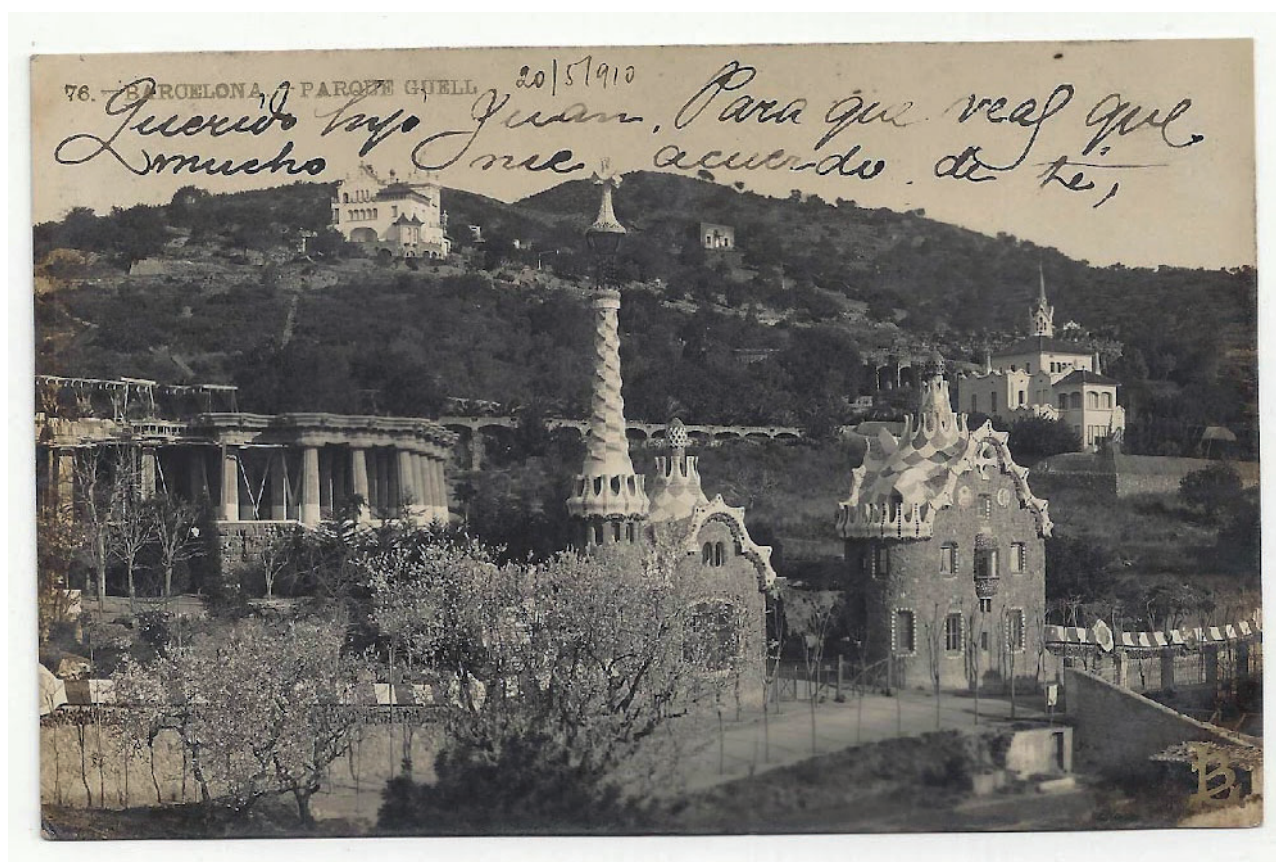 76. - BARCELONA. - PARQUE GÜELL
20/5/910
Querido hijo Juan. Para que veas que
mucho me acuerdo de ti,
B.